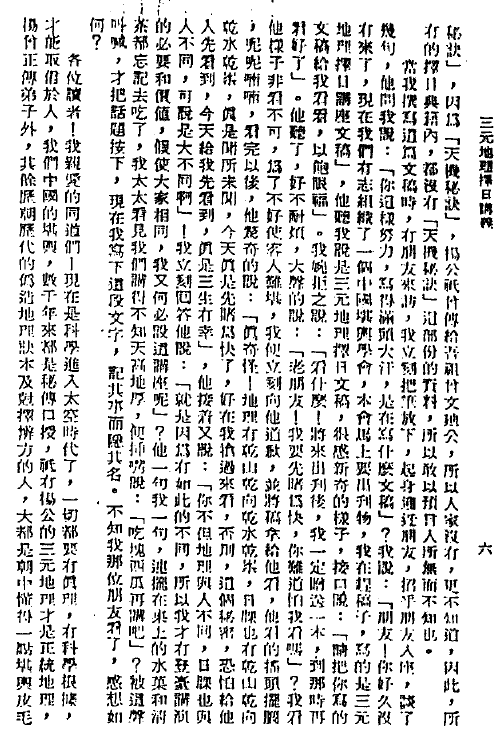 三元地理擇日講義
六
秘訣」，因爲「天機秘訣」，楊公祇付傳給吾祖付文地公，所以人家沒有，更不知道，因此，所
有的擇日典籍內，都沒有「天機秘訣」這部份的資料，所以敢以預言人所無而不知也。
當我撰寫這篇文稿時，有朋友來訪，我立刻把筆放下，起身迎近朋友，招乎朋友入座，談了
幾句，他問我說：「你這樣努力，寫得滿頭大汗，是在寫什麼文稿」？我說：「朋友！你好久沒
有來了，現在我們有志組織了一個中國堪輿學會，本會馬上要出刊物，我在趕稿子，寫的是三元
地理擇日講座文稿」，他聽我說是三元地理擇日文稿，很感新奇的樣子，接口說：「請把你寫的
文稿給我看看，以飽眼福」。我婉拒之說：「看什麼！將來出刊後，我一定贈送一本，到那時再
看好了」。他聽了，好不耐煩，大聲的說：「老朋友！我要先睹爲快，你難道怕我看嗎」？我看
他樣子非看不可，爲了不好使客人難堪，我便立刻向他道歉，並將稿拿給他看，他看的搖頭擺腦
，呢呢喃喃，看完以後，他驚奇的說：「眞奇怪！地理有乾山乾向乾水乾染，日課也有乾山乾向
乾水乾染，眞是聞所未聞，今天眞是先睹爲快了，好在我搶過來看，否則，這個秘密，恐怕給他
人先看到，今天給我先看到，眞是三生有幸」，他接着又說：「你不但地理與人不同，日課也與
人不同，可說是大不同啊」！我立刻回答他說：「就是因爲有如此的不同，所以我才有登臺講演
的必要和價値，假使大家相同，我又何必設這講座呢」？他一句我一句，連擺在桌上的水菓和清
茶都忘記去吃了，我太太看見我們講得不知天高地厚，便插嘴說：「吃塊西瓜再講吧」？被這聲
叫喊，才把話題按下，現在我寫下這段文字，記其事而隱其名。不知我那位朋友看了，感想如
何？
各位讀者！我親愛的同道們！現在是科學進入太空時代了，一切都要有眞理，有科學根據，
才能取信於人，我們中國的堪輿，數千年來都是秘傳口授，祇有楊公的三元地理才是正統地理，
楊曾正傳弟子外，其餘歷朝歷代的僞造地理訣本及選擇辦方的人，大都是朝中懂得一點堪輿皮毛